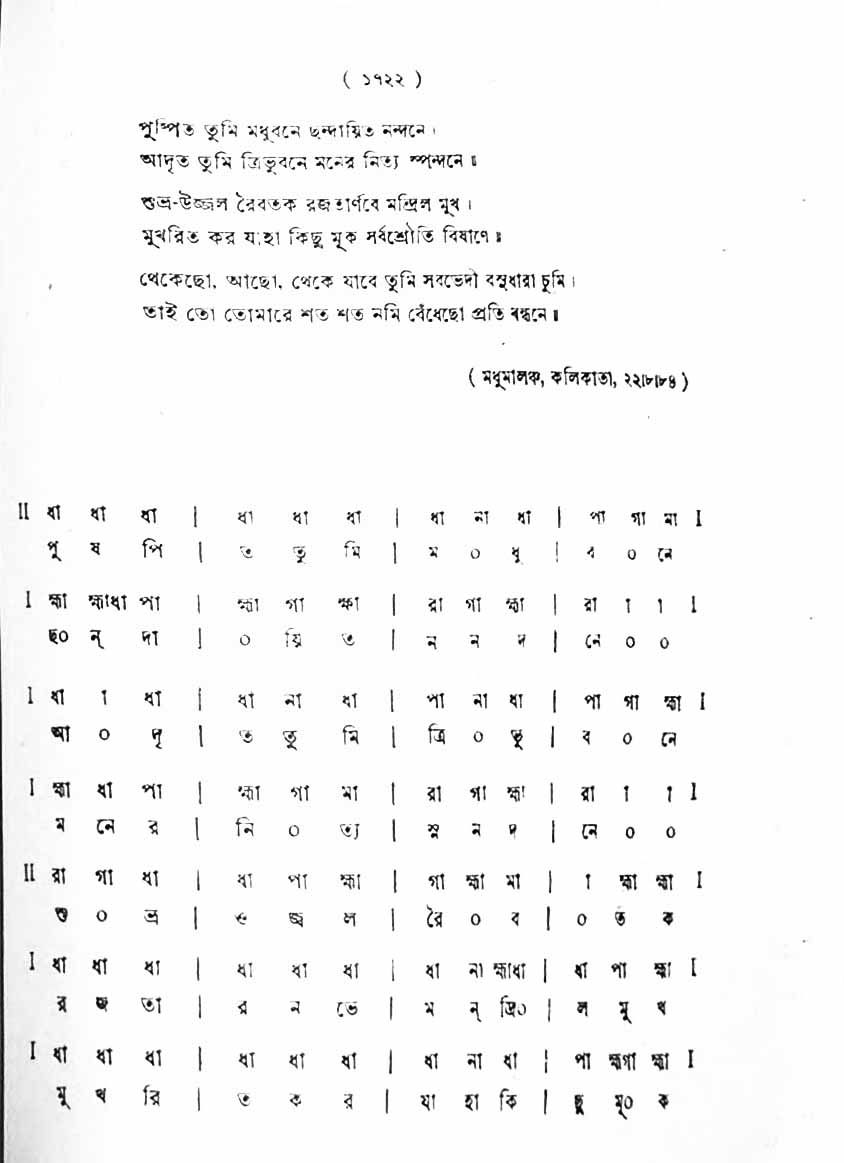 ( ১৭২২ )
পুষ্পিত তুমি মধুবনে ছন্দায়িত নন্দনে।
আদৃত তুমি ত্রিভুবনে মনের নিত্য স্পন্দনে॥
শুভ্র-উজ্জ্বল রৈবতক রজতার্ণবে মন্দ্রিল মুখ।
মুখরিত কর যাহা কিছু মূক সর্বশ্রৌতি বিষাণে॥
থেকেছো, আছো, থেকে যাবে তুমি সবভেদী বসুধারা চুমি।
তাই তো তোমারে শত শত নমি বেঁধেছো প্রতি বন্ধনে॥
( মধুমালঞ্চ, কলিকাতা, ২২।৮।৮৪ )
II ধা ধা ধা | ধা ধা ধা | ধা না ধা | পা গা মা I
পু ষ পি | ত তু মি | ম ০ ধু | ব ০ নে
I হ্মা হ্মাধা পা | হ্মা গা হ্মা | রা গা হ্মা | রা া া I
ছ০ ন্ দা | ০ য়ি ত | ন ন দ | নে ০ ০
I ধা া ধা | ধা না ধা | পা না ধা | পা গা হ্মা I
আ ০ দৃ | ত তু মি | ত্রি ০ ভু | ব ০ নে
I হ্মা ধা পা | হ্মা গা মা | রা গা হ্মা | রা া া I
ম নে র | নি ০ ত্য | স্প ন দ | নে ০ ০
II রা গা ধা | ধা পা হ্মা | গা হ্মা মা | া হ্মা হ্মা I
শু ০ ভ্র | উ জ্জ্ব ল | রৈ ০ ব | ০ ত ক
I ধা ধা ধা | ধা ধা ধা | ধা না হ্মাধা | ধা পা হ্মা I
র জ তা | র ন ভে | ম ন্ দ্রি০ | ল মু খ
I ধা ধা ধা | ধা ধা ধা | ধা না ধা | পা হ্মগা হ্মা I
মু খ রি | ত ক র | যা হা কি | ছু মূ০ ক